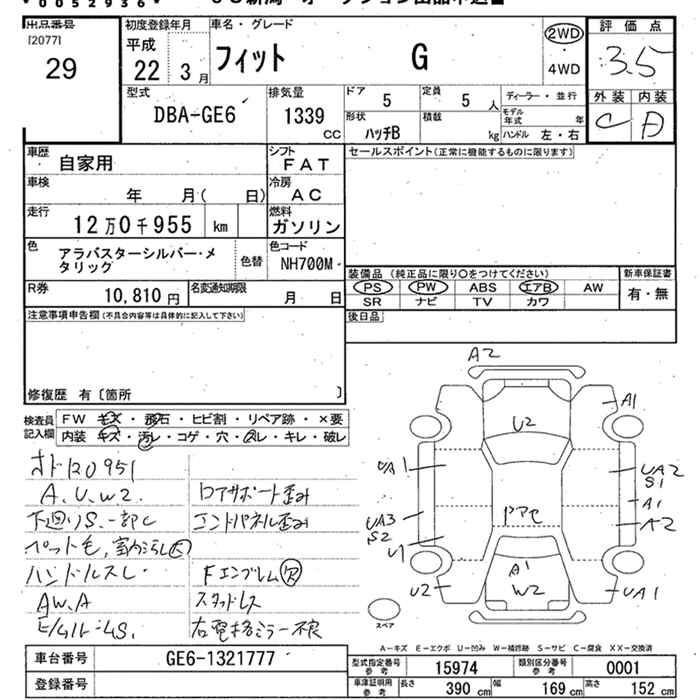 * 0052936 *
出品番号
[2077]
29
初度登録年月
平成
22 3 月
車名・グレード
フィット G
2WD
4WD
評価点
3.5
外装 内装
C
型式
DBA-GE6
排気量
1339
CC
ドア
5
定員
5 人
形状
ハッチB
積載
kg
ディーラー・並行
モデル年式 年
ハンドル 左・右
車歴
自家用
シフト
FAT
車検
年 月( 日)
冷房
AC
走行
12万0千955 km
燃料
ガソリン
色
アラバスターシルバー・メ
タリック
色替
色コード
NH700M
R券
10,810 円
名変通知期限
月 日
セールスポイント(正常に機能するものに限ります)
装備品 (純正品に限り○をつけてください)
PS PW ABS エアB AW
SR ナビ TV カワ
新車保証書
有・無
後日品
注意事項申告欄(不具合内容等は具体的に記入して下さい)
修復歴 有〔箇所 〕
検査員
記入欄
FW キズ・飛石・ヒビ割・リペア跡・×要
内装 キズ・汚レ・コゲ・穴・スレ・キレ・破レ
オド120951
A.U.W2.
下廻りS.一部C
ペット毛,室内汚レ大
ハンドルスレ.
AW.A
コアサポート歪み
エンドパネル歪み
Fエンブレム欠
スタッドレス
右電格ミラー不良
A2
A1
U2
UA1
UA2
S1
A1
A2
UA3
S2
U1
ドアモ
A1
W2
U2
UA1
スペア
A-キズ E-エクボ U-凹み W-補修跡 S-サビ C-腐食 XX-交換済
車台番号
GE6-1321777
登録番号
型式指定番号
参考
15974
類別区分番号
参考
0001
車庫証明用
参考
長さ 390 cm 幅 169 cm 高さ 152 cm